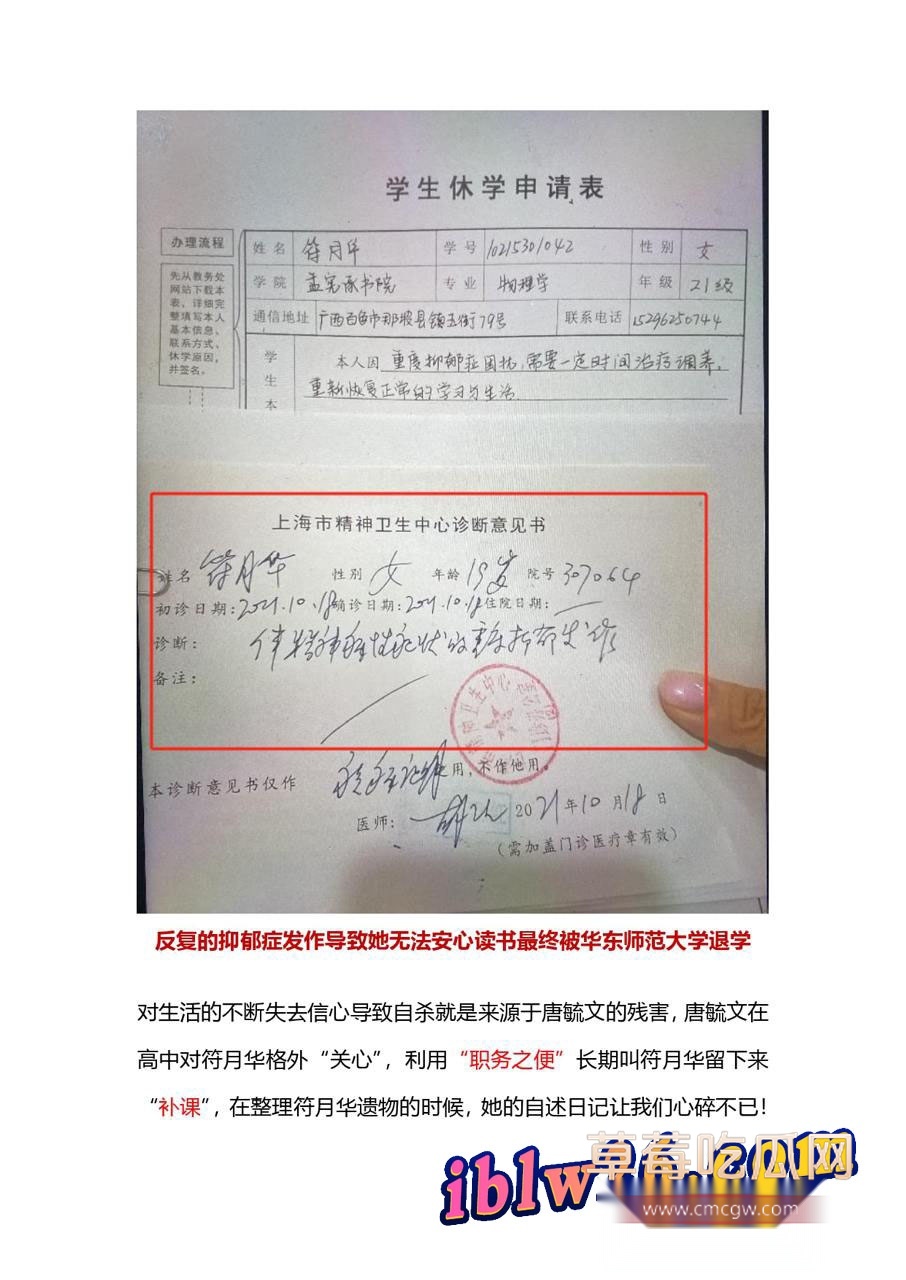 学生休学申请表
办理流程
先从教务处
网站下载本
表,详细完
整填写本人
基本信息、
联系方式、
休学原因,
并签名。
姓名 符月华 学号 10215301042 性别 女
学院 孟宪承书院 专业 物理学 年级 21级
通信地址 广西百色市那坡县镇玉街79号 联系电话 15296250744
学
生
本
本人因 重度抑郁症困扰,需要一定时间治疗调养,
重新恢复正常的学习与生活
上海市精神卫生中心诊断意见书
姓名 符月华 性别 女 年龄 19岁 院号 307064
初诊日期:2021.10.18 确诊日期:2021.10.18 住院日期:
诊断: 伴精神病性症状的重度抑郁发作
备注:
本诊断意见书仅作 用,不作他用。
医师: 2021年10月18日
(需加盖门诊医疗章有效)
反复的抑郁症发作导致她无法安心读书最终被华东师范大学退学
对生活的不断失去信心导致自杀就是来源于唐毓文的残害,唐毓文在
高中对符月华格外“关心”,利用“职务之便”长期叫符月华留下来
“补课”,在整理符月华遗物的时候,她的自述日记让我们心碎不已!
草莓吃瓜网
www.cmcgw.com